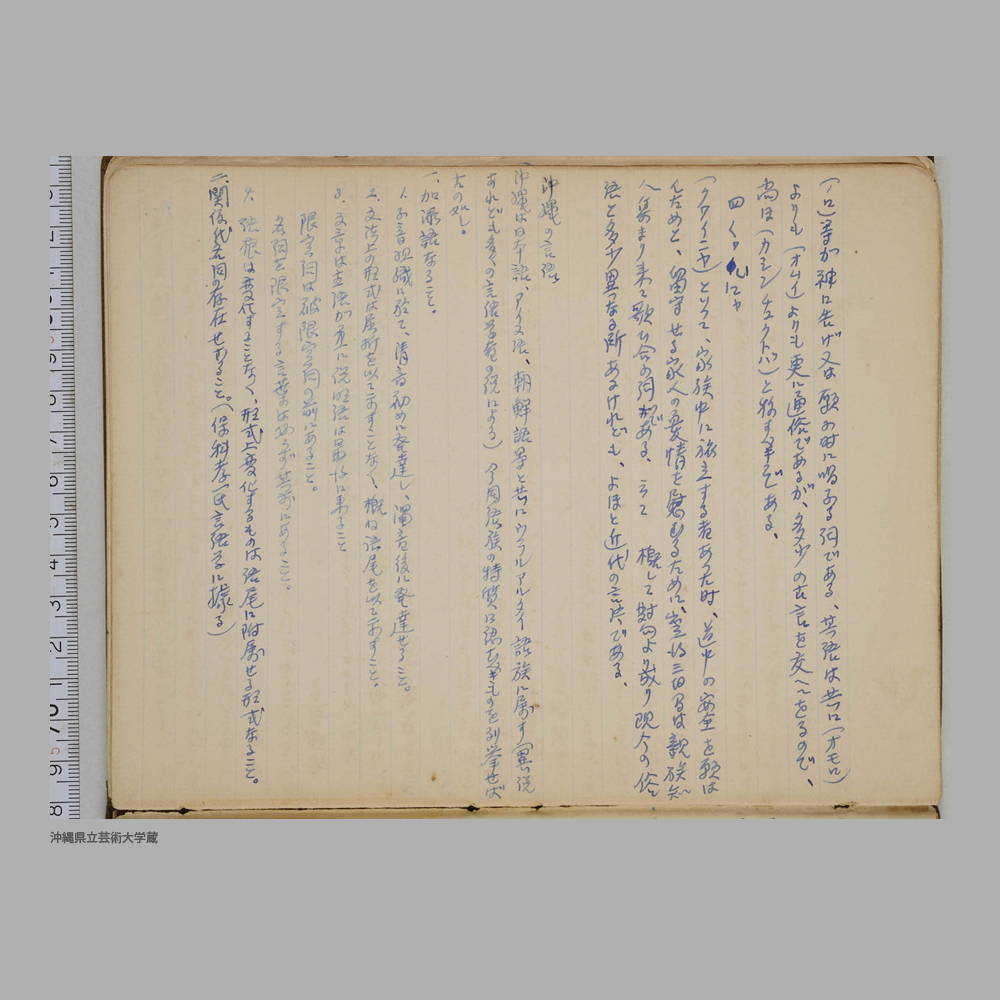 （ノロ）等が神に告げ又は願の時に唱ふる詞である、其語は共に（オモロ）
よりも（オムイ）よりも更に通俗であるが、多少の古言を交へをるので、
尚ほ（カミンチュクトバ）と称す筆である、
四 くわいにゃ
（クワイニヤ）といつて、家族中に旅立する者あつた時、道中の安全を願は
んためと、留守せる家人の憂情を慰むるために、三四日は親族知
人集まり来て歌ひ合ふ詞がある、概して対句より成り現今の俗
語と多少異つなる所あるけれども、よほと近代の言語である、
沖縄の言語
沖縄は日本語、アイヌ語、朝鮮語等と共にウラルアルタイ語族に属す（異説
あれども多くの言語学者の説による）今同語族の特質は認むべきものを列挙せば
左の如し。
一、加添語なること。
1. 子音組織に於て、清音初めに発達し、濁音後に発達せること。
2. 文法上の形式は屈折を以て示すことなく、概ね語尾を以て示すこと。
3. 文章は主語が真先に説明語は最後に来ること
限定詞は被限定詞の前にあること。
名詞を限定する言葉は必らず其前にあること。
4. 語根は変化することなく、形式上変化するものは語尾に附属せる形式なること。
二、関係代名詞の存在せざること。（保科孝一氏言語学に據る）
沖縄県立芸術大学蔵